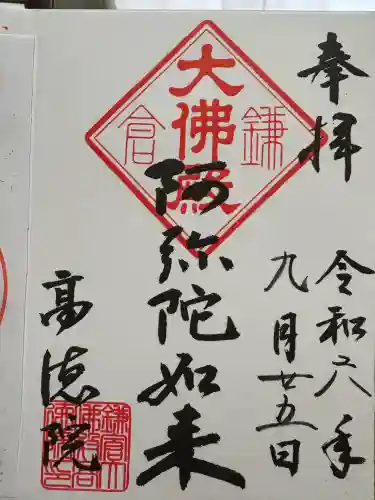 奉拝
令和六年
九月廿五日
大佛殿
鎌倉
阿弥陀如来
高徳院